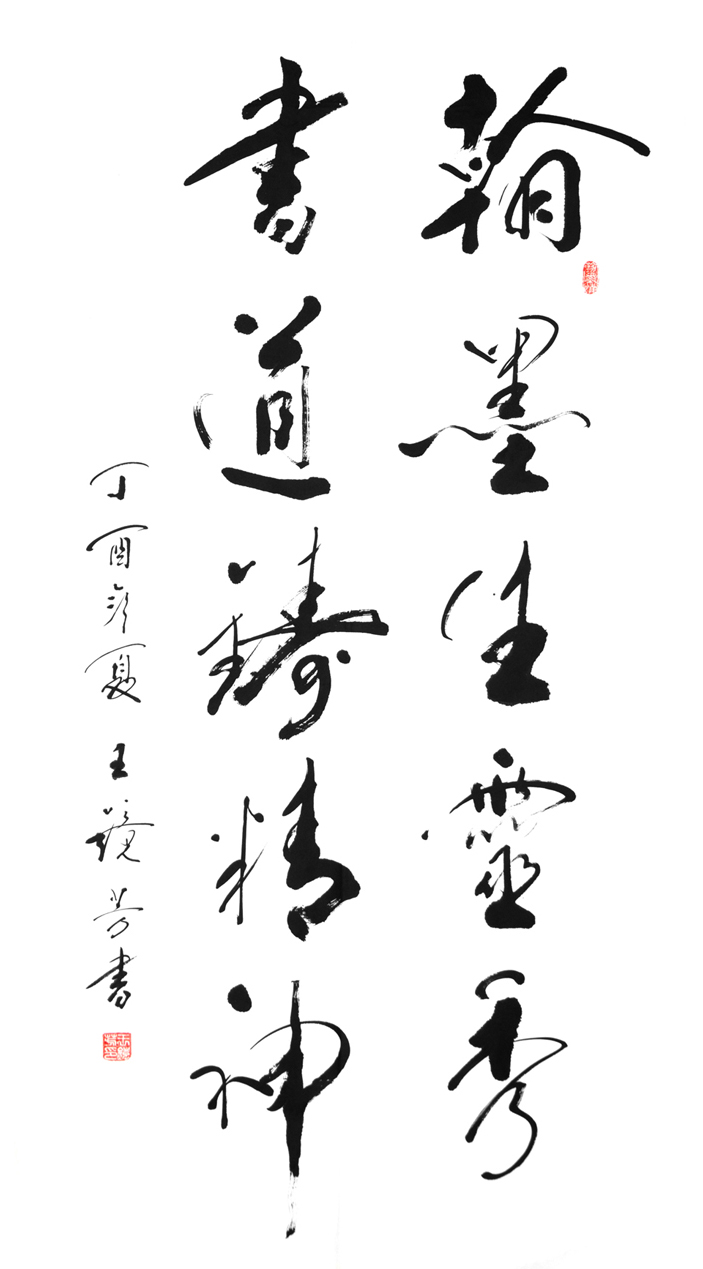 翰墨生靈秀
書道鑄精神
丁酉年夏王鏡芳書